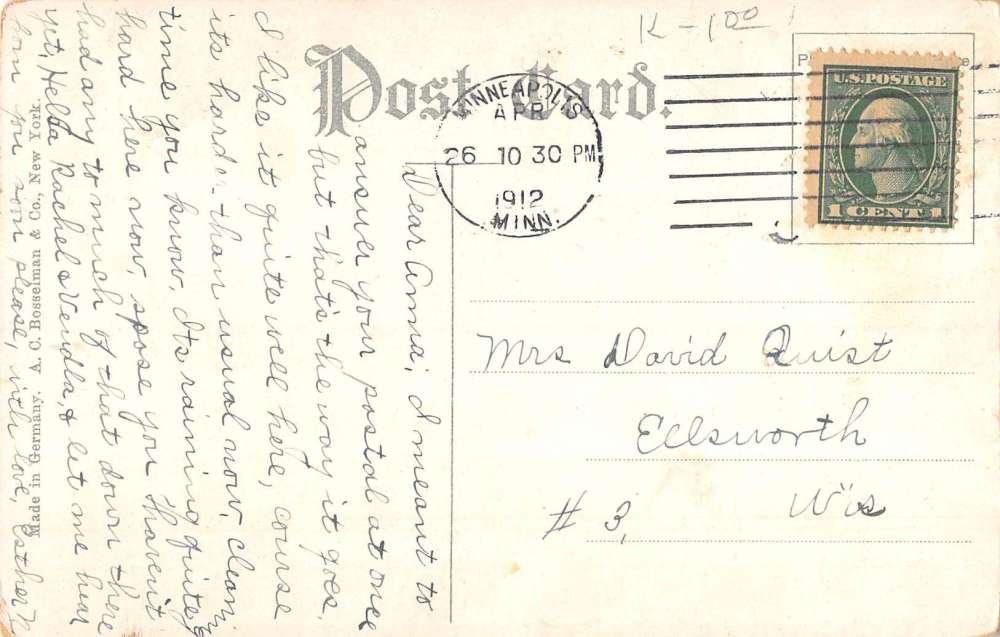 K-1 00
Post Card.
MINNEAPOLIS
APR
26 10 30 PM
1912
MINN.
U.S. POSTAGE
1 CENT 1
Mrs David Quist
Ellsworth
# 3, Wis
Dear Anna; I meant to
answer your postal at once
but that's the way it goes.
I like it quite well here, course
its harder than usual now, clean
time you know. Its raining quite
hard here now, spose you havent
had any to much of that down there
yet, Hello Rachel & Vendla, & let me hear
from you soon please, with love, Esther N
Made in Germany. A. C. Bosselman & Co., New York.